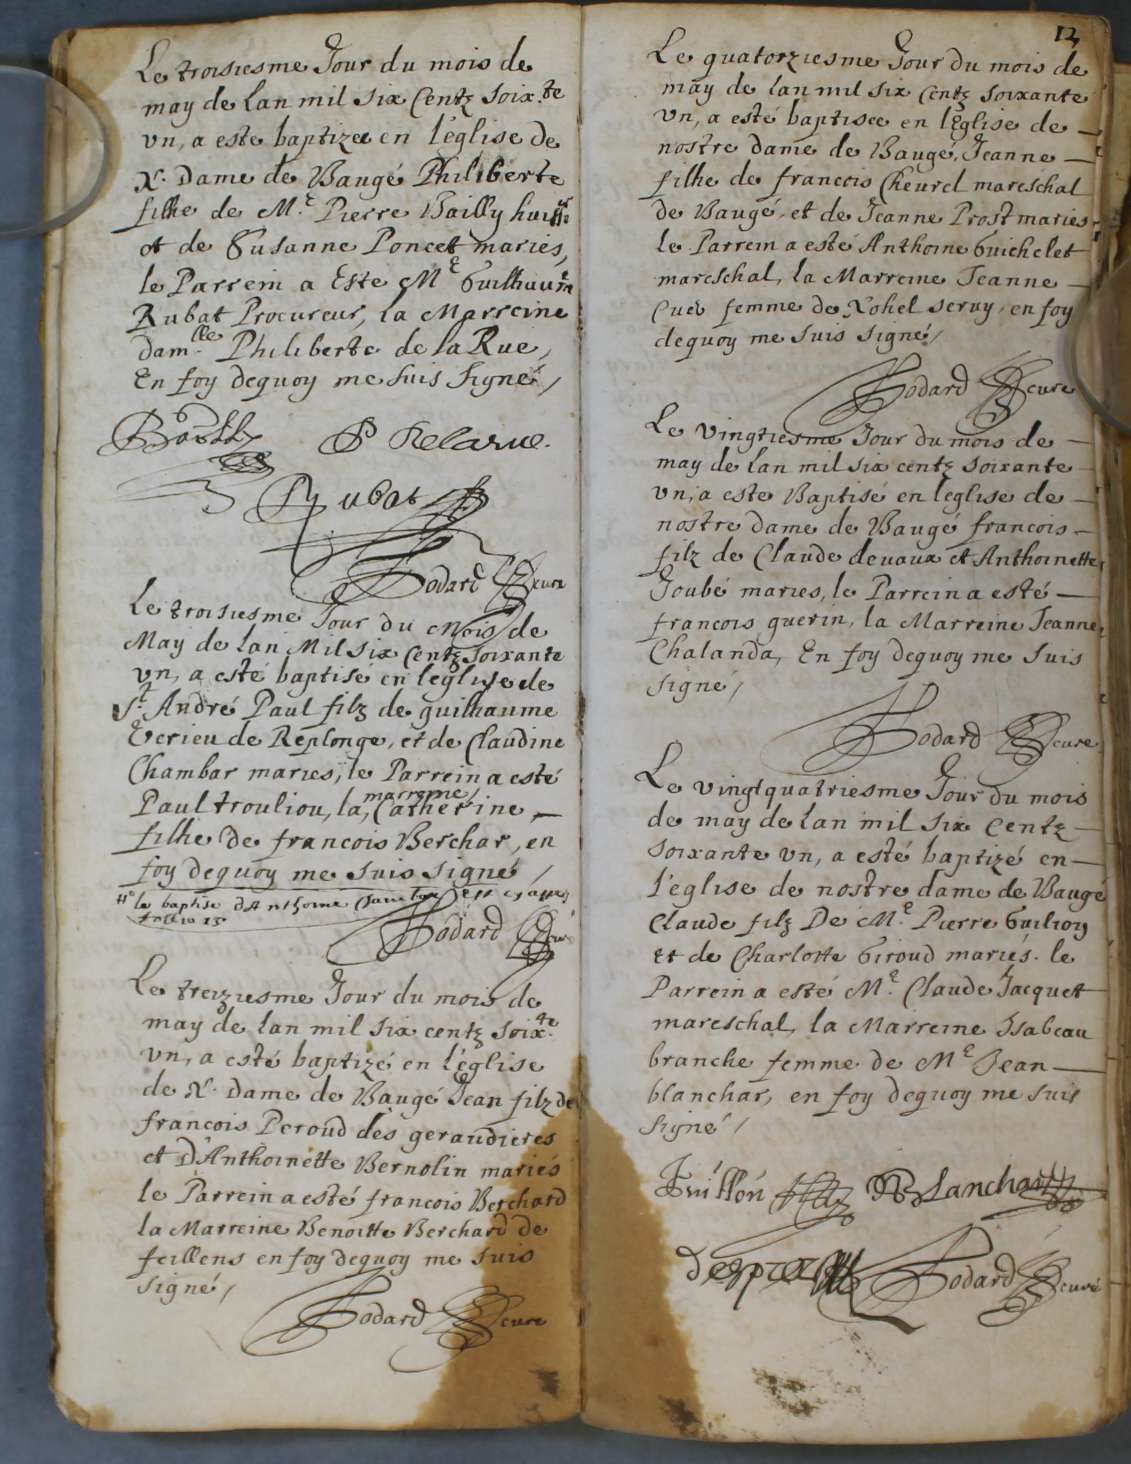 Le troisiesme Jour du mois de
may de lan mil six Centz soix.te
vn, a este baptizee en l'eglise de
N. Dame de Baugé Philiberte
filhe de M.e Pierre Bailly huiss.r
et de Susanne Poncet mariés,
le Parrein a Este M.e Guilhaume
Rubat Procureur, la Marreine
dam.lle Philiberte de la Rue,
En foy dequoy me suis signé,/
Bailly P Delarue.
Rubat
Bodard cure
Le troisiesme Jour du Mois de
May de lan Mil six Centz soixante
vn, a esté baptisé en leglise de
S.t André Paul filz de guilhaume
Ecrieu de Replonge, et de Claudine
Chambar maries, le Parrein a esté
Paul trouliou, la marreine/ Catherine
filhe de francois Berchar, en
foy dequoy me suis signé /
le baptise d'Anthoine
follio 15
Bodard Cure
Le treiziesme Jour du mois de
may de lan mil six centz soix.te
vn, a esté baptizé en l'eglise
de N. Dame de Baugé Jean filz de
francois Peroud des geraudieres
et D'Anthoinette Bernolin mariés
le Parrein a esté francois Berchard
la Marreine Benoitte Berchard de
feillens en foy dequoy me suis
signé,/
Bodard cure
12
Le quatorziesme Jour du mois de
may de lan mil six Centz soixante
vn, a esté baptisee en l'Eglise de
nostre dame de Baugé, Jeanne
filhe de francois Cheurel mareschal
de Baugé, et de Jeanne Prost maries
le Parrein a esté Anthoine Guichelet
mareschal, la Marreine Jeanne
femme de Nohel seruy, en foy
dequoy me suis signé,/
Bodard cure
Le vingtiesme Jour du mois de
may de lan mil six centz soixante
vn, a este Baptisé en leglise de
nostre dame de Baugé francois
filz de Claude deuaux et Anthoinette
Joubé maries, le Parrein a esté
francois guerin, la Marreine Jeanne
Chalanda, En foy dequoy me suis
signé,/
Bodard cure
Le vingtquatriesme Jour du mois
de may de lan mil six Centz
soixante vn, a esté baptizé en
l'eglise de nostre dame de Baugé
Claude filz De M.e Pierre Guilion
et de Charlotte Giroud mariés. le
Parrein a esté M.e Claude Jacquet
mareschal, la Marreine Isabeau
branche femme de M.e Jean
blanchar, en foy dequoy me suis
signé,/
Guillon Blanchar
Bodard curé